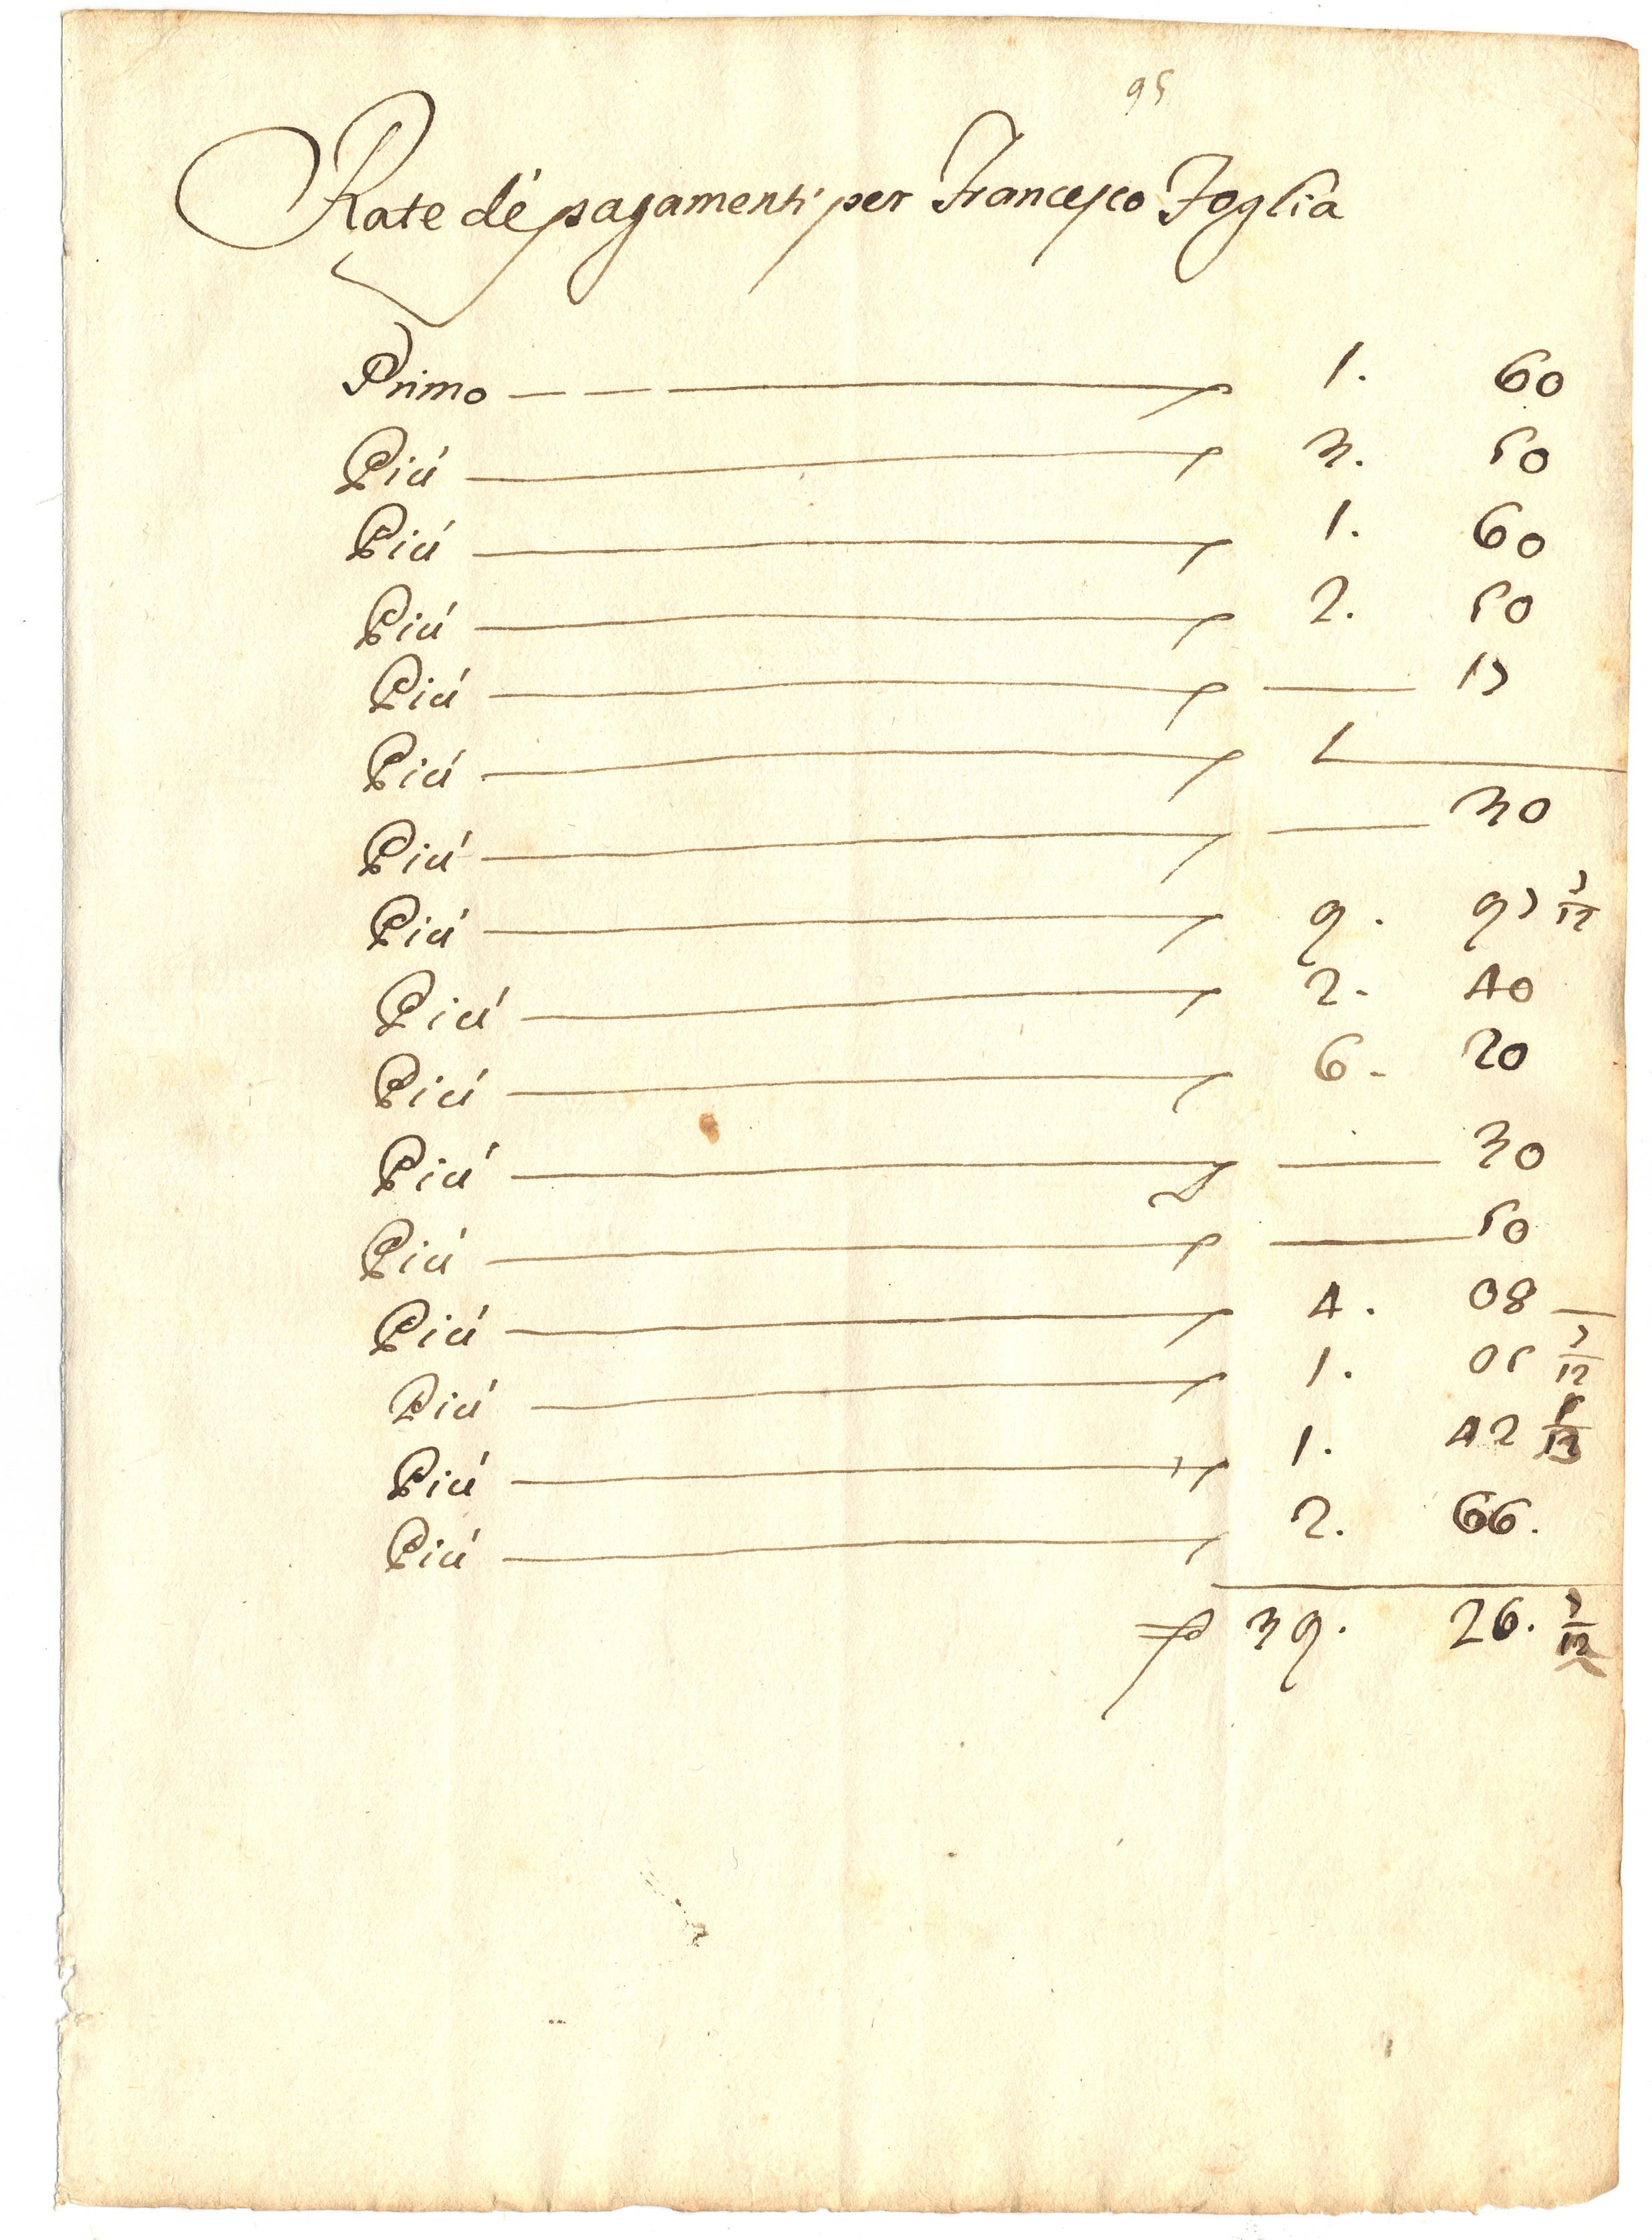 95
Rate de' pagamenti per Francesco Foglia
Primo — — — 1. 60
Più — 3. 50
Più — 1. 60
Più — 2. 50
Più — — 17
Più — 1 —
Più — — 30
Più — 9. 97 7/12
Più — 2. 40
Più — 6. 20
Più — — 30
Più — — 50
Più — 4. 08 —
Più — 1. 05 7/12
Più — 1. 42 5/12
Più — 2. 66.
39. 26. 7/12